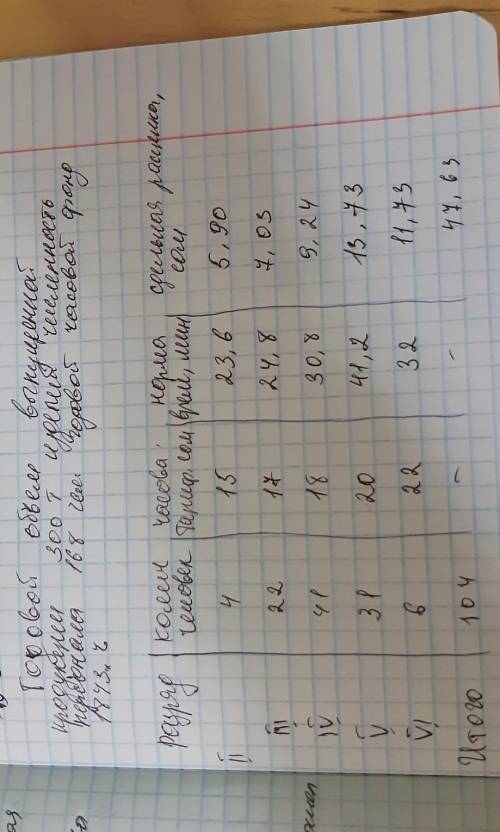 Годовой объем выпущенной
продукции 300 т изделий численность
персонала 168 чел. годовой часовой фонд
1843 ч
разряд колич человек часова. тариф. сом норма врем, мин сдельная расценка, сом
II 4 15 23,6 5,90
III 22 17 24,8 7,03
IV 41 18 30,8 9,24
V 31 20 41,2 13,73
VI 6 22 32 11,73
Итого 104 - - 47,63